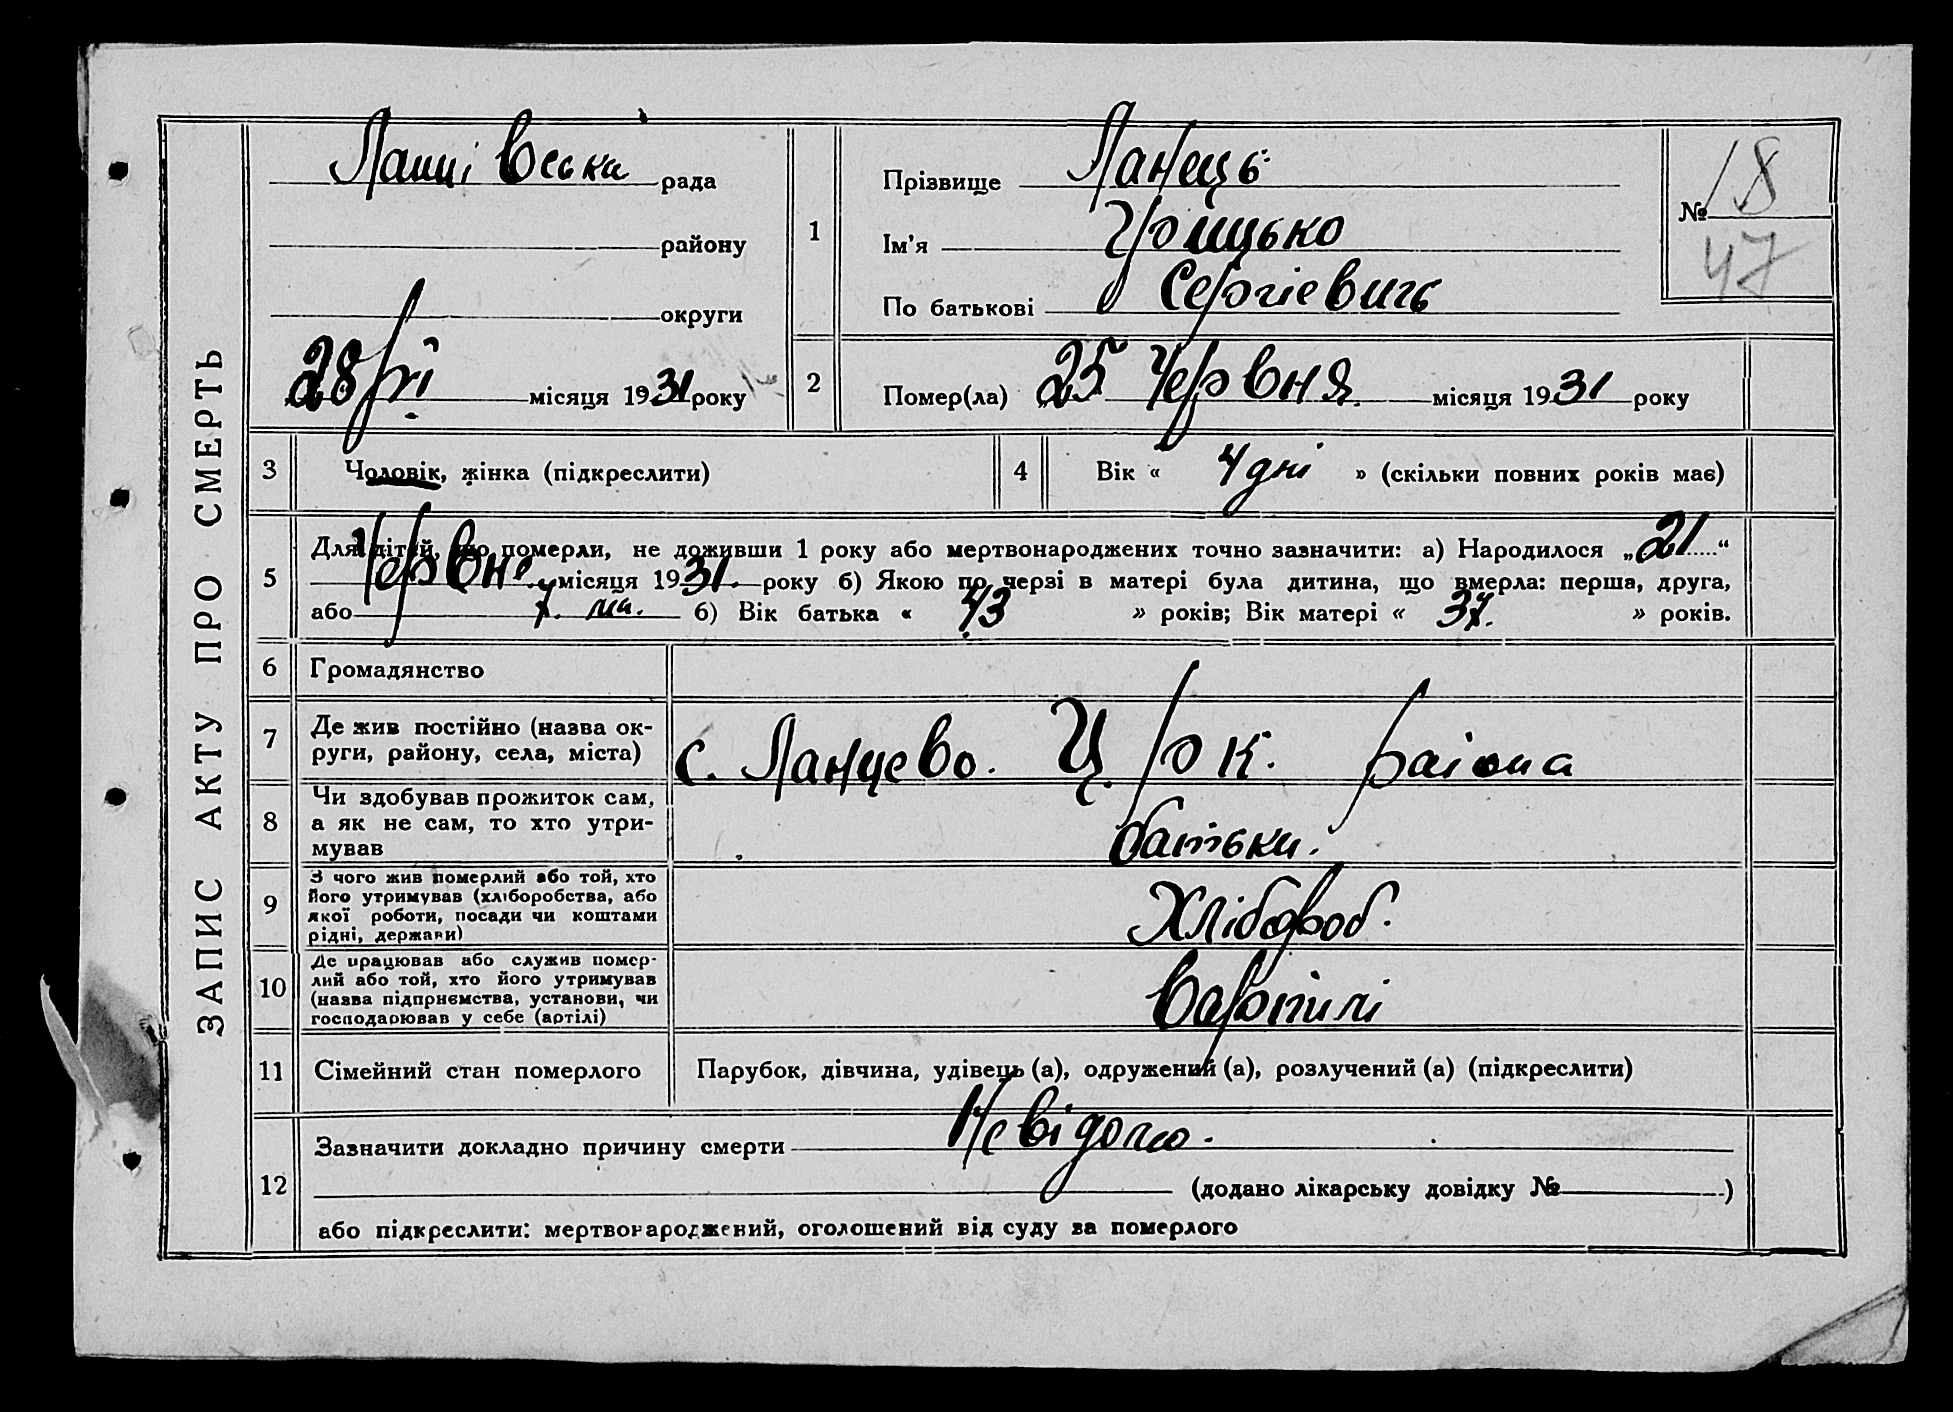 ЗАПИС АКТУ ПРО СМЕРТЬ
рада
району
округи
28 місяця 1931 року
1
Прізвище Ланець
Ім'я Грицько
По батькові Сергієвичь
№ 18
47
2
Помер(ла) 25 Червня місяця 1931 року
3
Чоловік, жінка (підкреслити)
4
Вік « 4 дні » (скільки повних років має)
5
Для дітей, що померли, не доживши 1 року або мертвонароджених точно зазначити: а) Народилося „21“
Червня місяця 1931. року б) Якою по черзі в матері була дитина, що вмерла: перша, друга,
або 7. ма. б) Вік батька « 43 » років; Вік матері « 37. » років.
6
Громадянство
7
Де жив постійно (назва ок-
руги, району, села, міста)
с. Ланцево. Ц рк. района
8
Чи здобував прожиток сам,
а як не сам, то хто утри-
мував
батьки.
9
З чого жив померлий або той, хто
його утримував (хліборобства, або
якої роботи, посади чи коштами
рідні, держави)
Хлібороб.
10
Де працював або служив помер-
лий або той, хто його утримував
(назва підприємства, установи, чи
господарював у себе (артілі)
вартилі
11
Сімейний стан померлого
Парубок, дівчина, удівець (а), одружений (а), розлучений (а) (підкреслити)
12
Зазначити докладно причину смерти Невідомо.
(додано лікарську довідку № )
або підкреслити: мертвонароджений, оголошений від суду за померлого